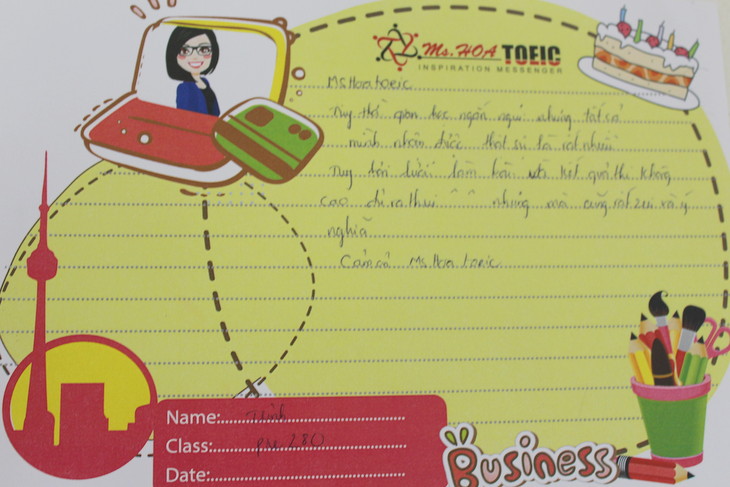 Ms. HOA TOEIC
INSPIRATION MESSENGER
MsHoatoeic
Tuy thời gian học ngắn ngủi nhưng tất cả
mình nhận được thật sự là rất nhiều
Tuy lười làm bài và kết quả thi không
cao nhưng mà cũng rất zui và ý
nghĩa
Cảm ơn MsHoa toeic
Name:
Class: pre 280
Date:
Business